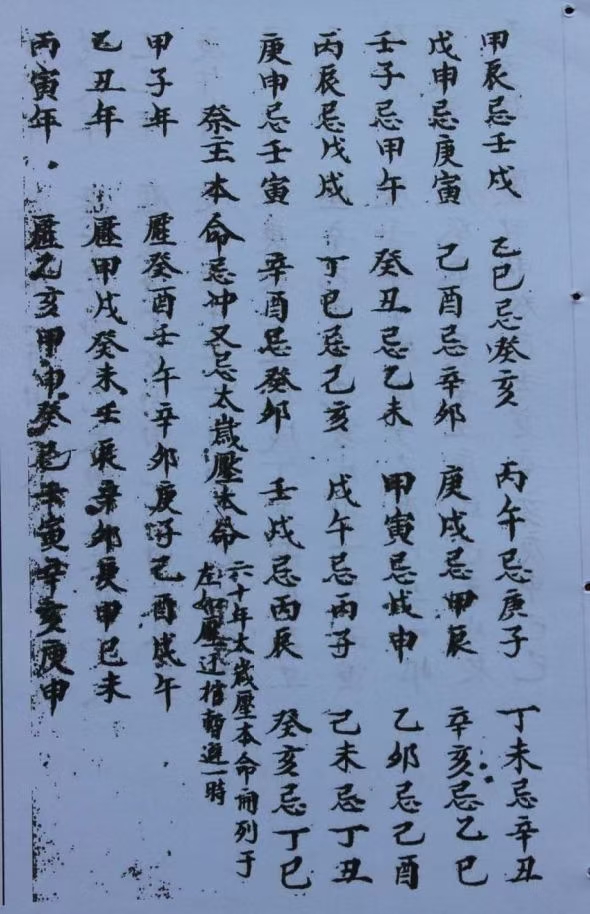 甲辰忌壬戌 乙巳忌癸亥 丙午忌庚子 丁未忌辛丑
戊申忌庚寅 己酉忌辛卯 庚戌忌甲辰 辛亥忌乙巳
壬子忌甲午 癸丑忌乙未 甲寅忌戊申 乙卯忌己酉
丙辰忌戊戌 丁巳忌己亥 戊午忌丙子 己未忌丁丑
庚申忌壬寅 辛酉忌癸卯 壬戌忌丙辰 癸亥忌丁巳
祭主本命忌冲又忌太歲壓本命
六十年太歲壓本命而列于
左如壓 暫避一時
甲子年 壓癸酉壬午辛卯庚子己酉戊午
乙丑年 壓甲戌癸未壬辰辛卯庚甲己未
丙寅年 壓乙亥甲申癸巳壬寅辛亥庚申